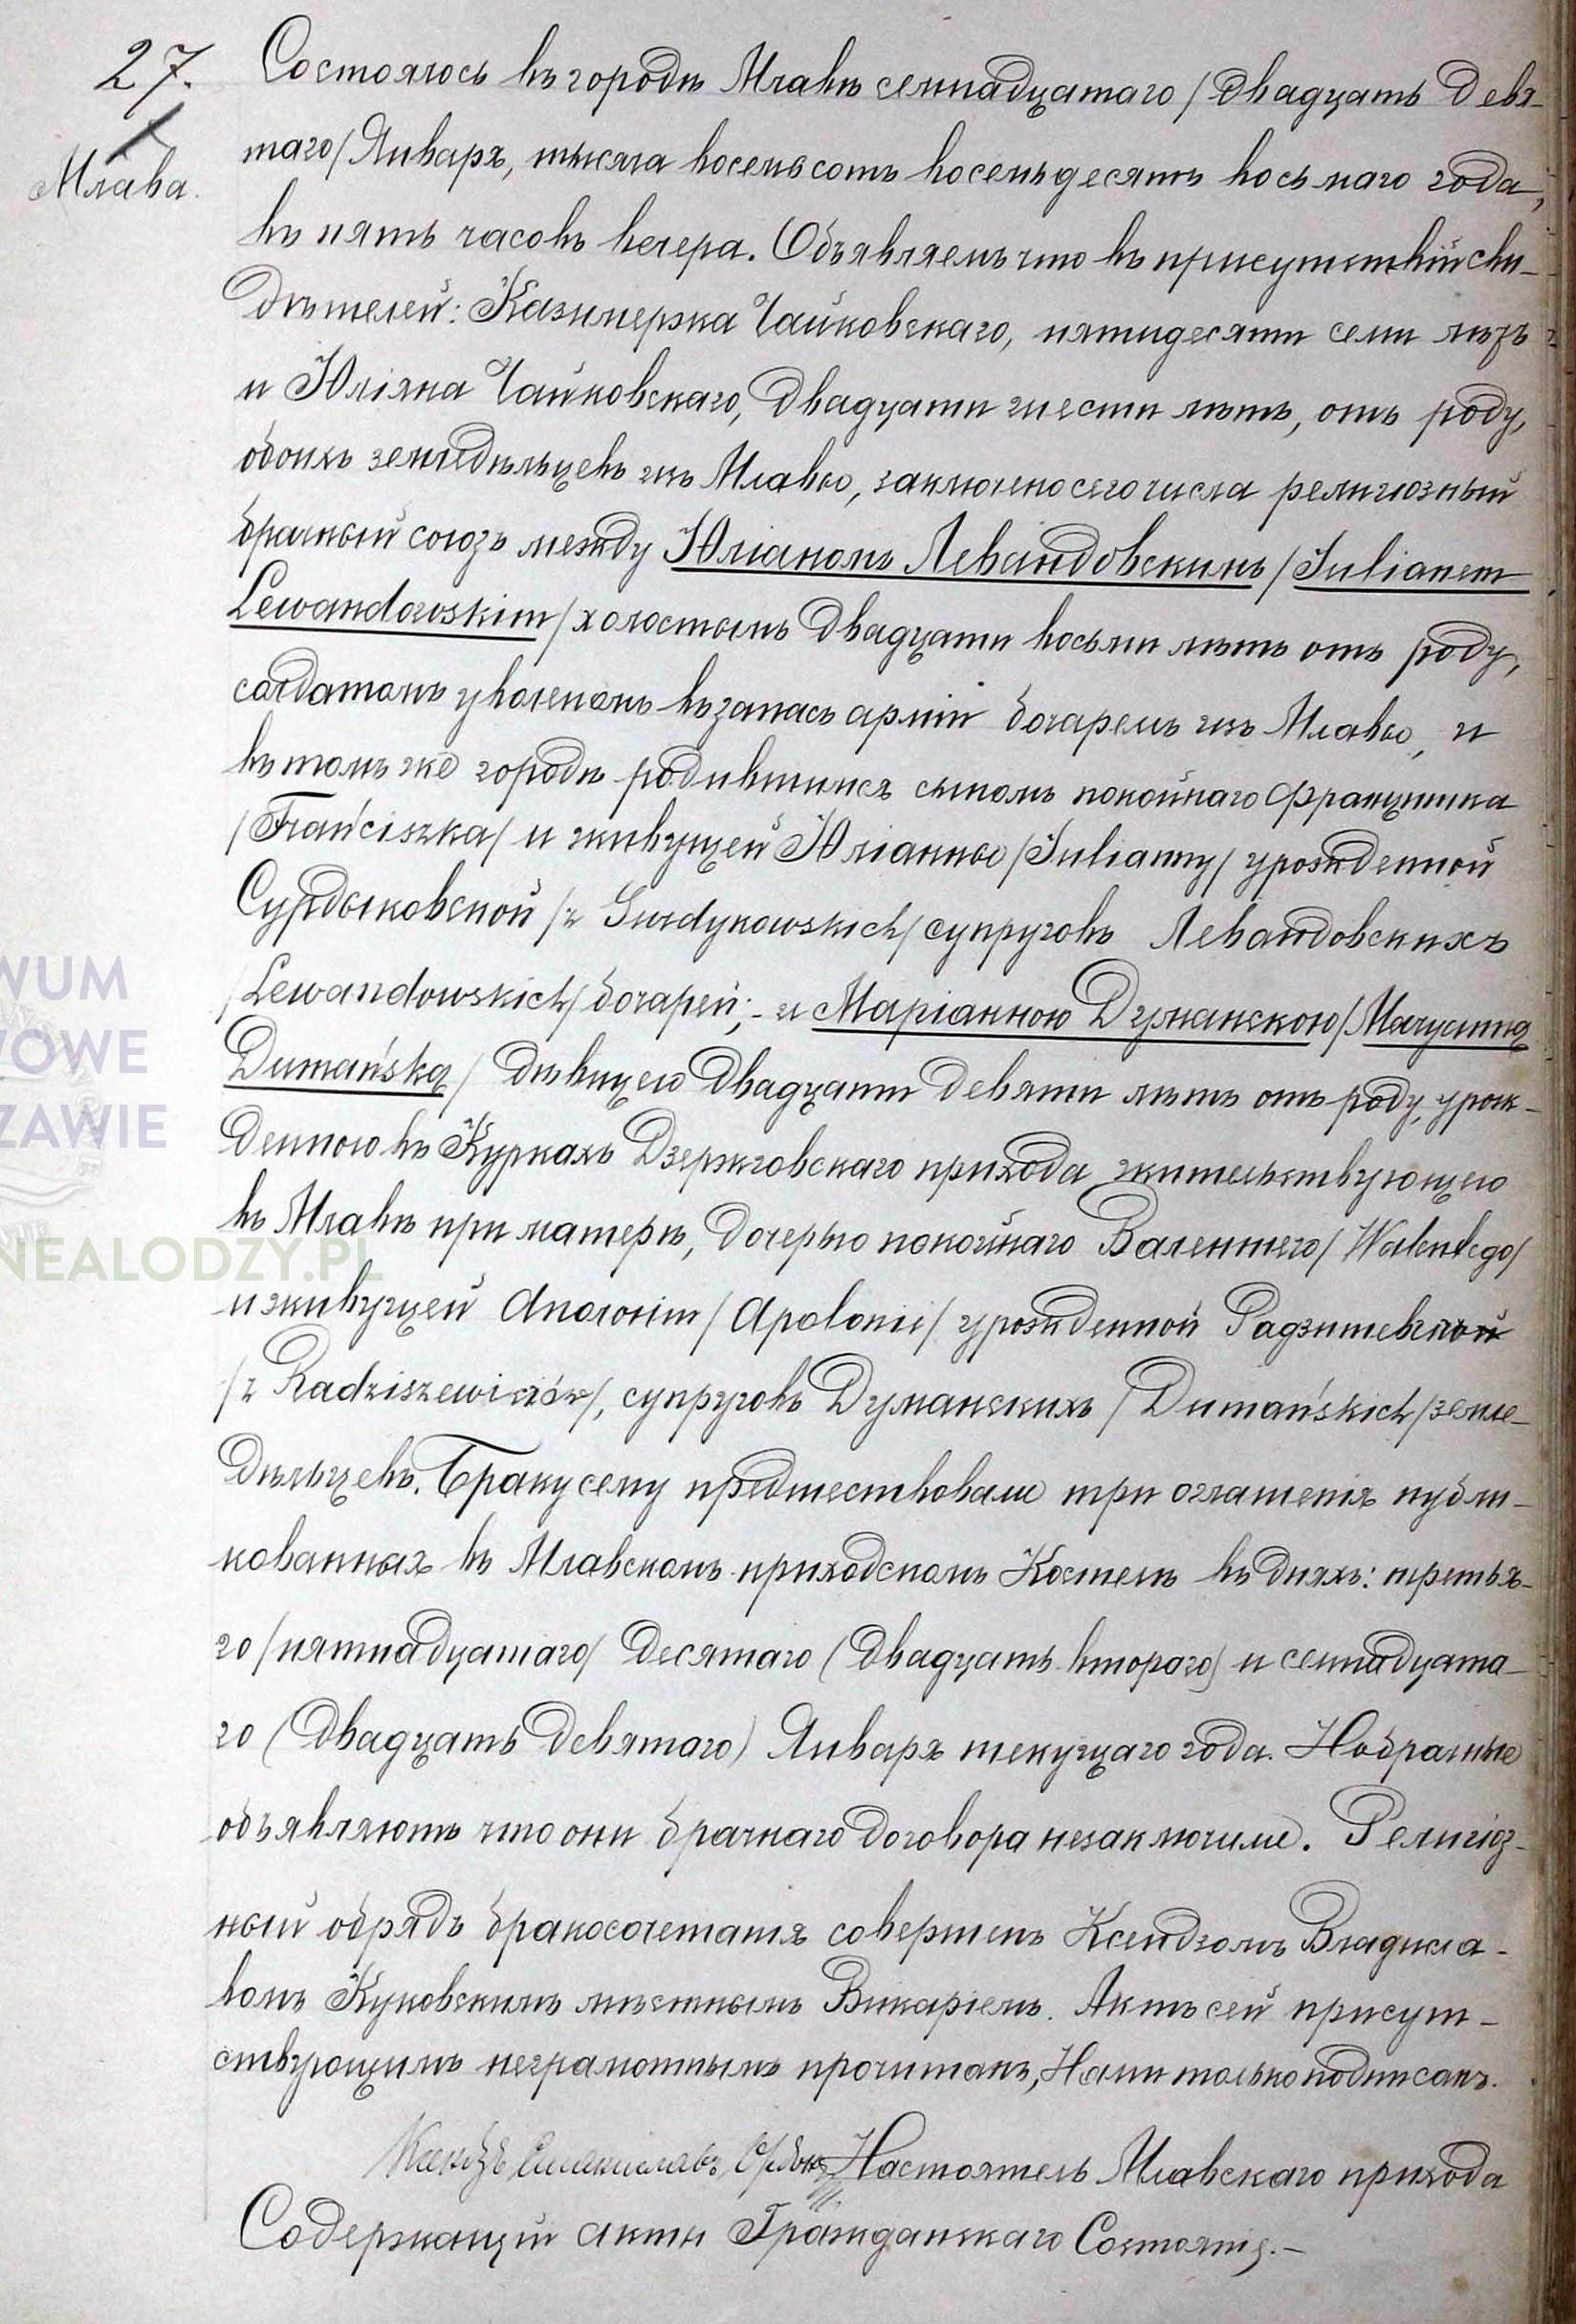 27.
Млава.
Состоялось въ городѣ Млавѣ семнадцатаго / двадцать девя-
таго / Января, тысяча восемьсотъ восемьдесятъ восьмаго года,
въ пять часовъ вечера. Объявляемъ что въ присутствіи сви-
дѣтелей: Казимержа Чайковскаго, пятидесяти семи лѣтъ
и Юліяна Чайковскаго, двадцати шести лѣтъ, отъ роду,
обоихъ земледѣльцевъ изъ Млавы, заключено сего числа религіозный
брачный союзъ между Юліаномъ Левандовскимъ / Julianem
Lewandowskim / холостымъ двадцати восьми лѣтъ отъ роду,
солдатомъ уволеномъ въ запасъ арміи бочаремъ изъ Млавы, и
въ томъ же городѣ родившимся сыномъ покойнаго Францишка
/ Frańciszka / и живущей Юліанны / Julianny / урожденной
Сурдыковской / z Surdykowskich / супруговъ Левандовскихъ
/ Lewandowskich / бочарей; - и Маріанною Думанскою / Maryanną
Dumańską / дѣвицею двадцати девяти лѣтъ отъ роду, урож-
денною въ Куркахъ Дзержговскаго прихода жительствующею
въ Млавѣ при матерѣ, дочерью покойнаго Валентего / Walentego /
и живущей Аполоніи / Apolonii / урожденной Радзишевской
/ z Radziszewiczów /, супруговъ Думанскихъ / Dumańskich / земле-
дѣльцевъ. Браку сему предшествовали три оглашенія публи-
кованныя въ Млавскомъ приходскомъ Костелѣ въ дняхъ: третья-
го / пятнадцатаго / десятаго (двадцать втораго) и семнадцата-
го (двадцать девятаго) Января текущаго года. Новобрачные
объявляютъ что они брачнаго договора незаключили. Религіоз-
ный обрядъ бракосочетанія совершенъ Ксендзомъ Владисла-
вомъ Жуковскимъ мѣстнымъ Викаріемъ. Актъ сей присут-
ствующимъ неграмотнымъ прочитанъ, Нами только подписанъ.
Ксендзъ Станиславъ Настоятель Млавскаго прихода
Содержащій акты Гражданскаго Состоянія. -
WUM
WOWE
ZAWIE
NEALODZY.PL